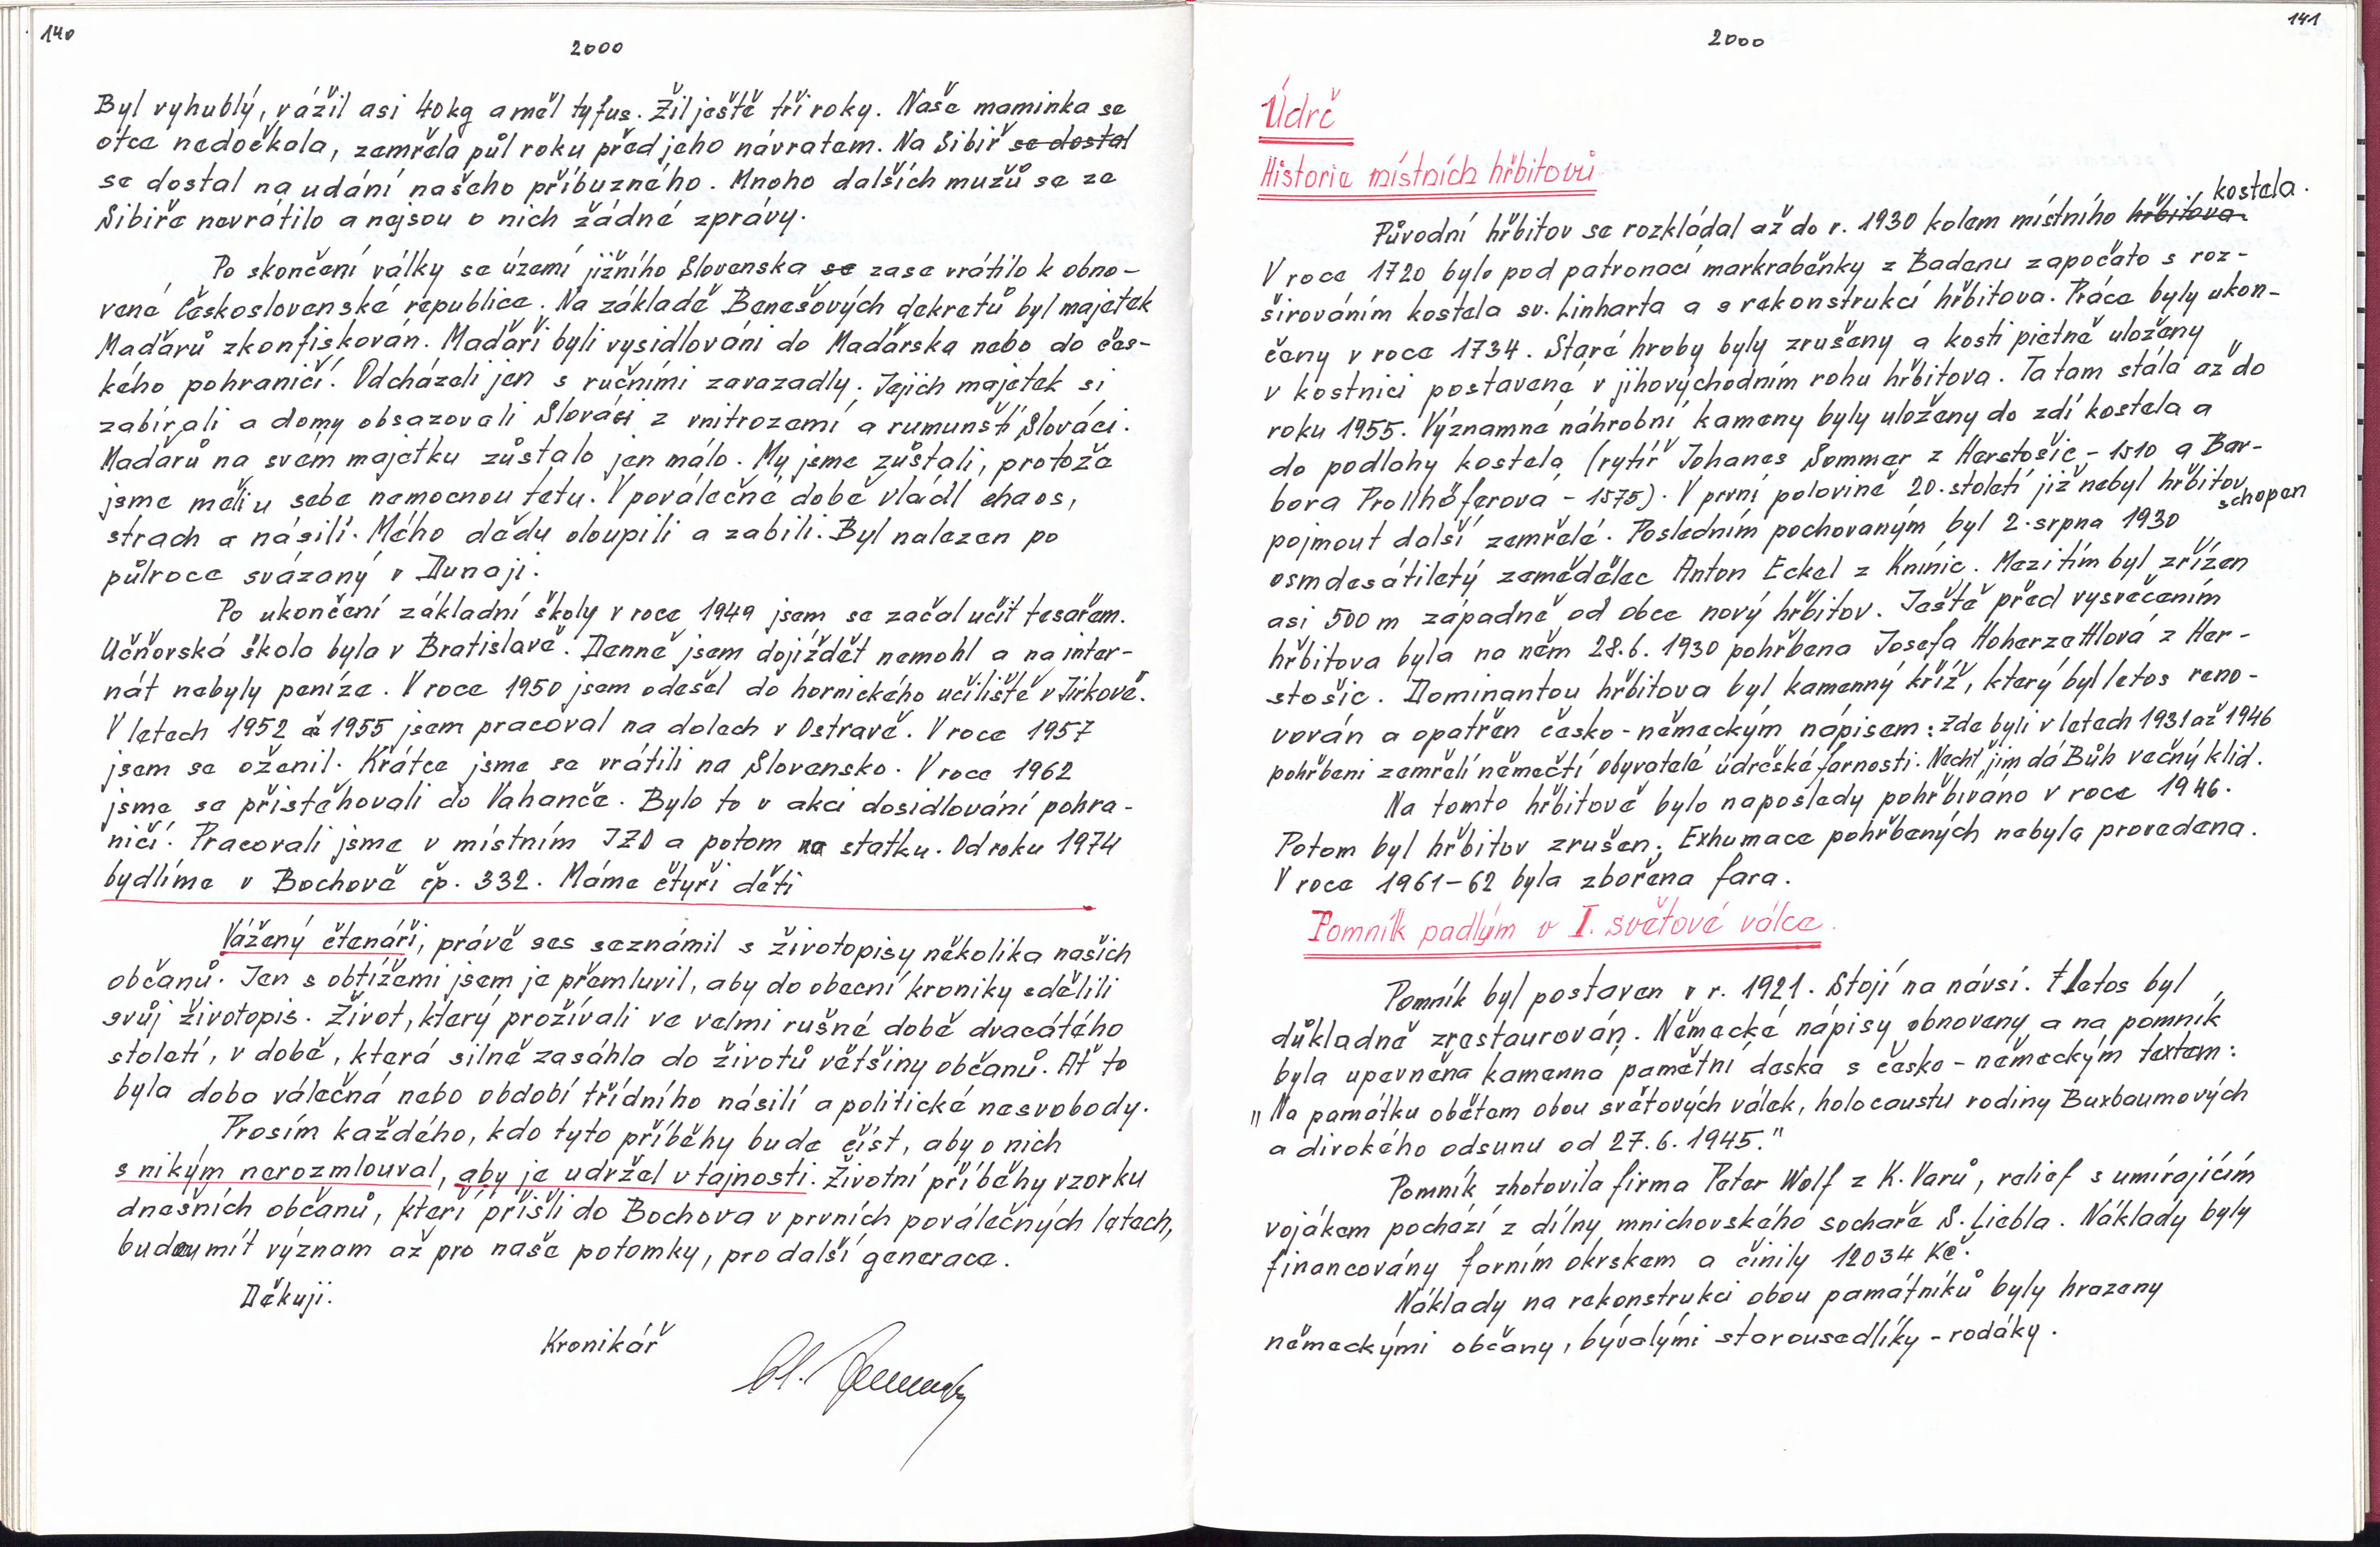 140
2000
Byl vyhublý, vážil asi 40 kg a měl tyfus. Žil ještě tři roky. Naše maminka se
otce nedočkala, zemřela půl roku před jeho návratem. Na Sibiř se dostal
se dostal na udání našeho příbuzného. Mnoho dalších mužů se ze
Sibiře nevrátilo a nejsou o nich žádné zprávy.
Po skončení války se území jižního Slovenska se zase vrátilo k obno-
vené Československé republice. Na základě Benešových dekretů byl majetek
Maďarů zkonfiskován. Maďaři byli vysidlováni do Maďarska nebo do čes-
kého pohraničí. Odcházeli jen s ručními zavazadly. Jejich majetek si
zabírali a domy obsazovali Slováci z vnitrozemí a rumunští Slováci.
Maďarů na svém majetku zůstalo jen málo. My jsme zůstali, protože
jsme měli u sebe nemocnou tetu. V poválečné době vládl chaos,
strach a násilí. Mého dědu oloupili a zabili. Byl nalezen po
půlroce svázaný v Dunaji.
Po ukončení základní školy v roce 1949 jsem se začal učit tesařem.
Učňovská škola byla v Bratislavě. Denně jsem dojíždět nemohl a na inter-
nát nebyly peníze. V roce 1950 jsem odešel do hornického učiliště v Jirkově.
V letech 1952 až 1955 jsem pracoval na dolech v Ostravě. V roce 1957
jsem se oženil. Krátce jsme se vrátili na Slovensko. V roce 1962
jsme se přistěhovali do Vahanče. Bylo to v akci dosidlování pohra-
ničí. Pracovali jsme v místním JZD a potom na statku. Od roku 1974
bydlíme v Bochově čp. 332. Máme čtyři děti
Vážený čtenáři, právě ses seznámil s životopisy několika našich
občanů. Jen s obtížemi jsem je přemluvil, aby do obecní kroniky sdělili
svůj životopis. Život, který prožívali ve velmi rušné době dvacátého
století, v době, která silně zasáhla do životů většiny občanů. Ať to
byla doba válečná nebo období třídního násilí a politické nesvobody.
Prosím každého, kdo tyto příběhy bude číst, aby o nich
s nikým nerozmlouval, aby je udržel v tajnosti. Životní příběhy vzorku
dnešních občanů, kteří přišli do Bochova v prvních poválečných letech,
budou mít význam až pro naše potomky, pro další generace.
Děkuji.
Kronikář
141
2000
Údrč
Historie místních hřbitovů
Původní hřbitov se rozkládal až do r. 1930 kolem místního hřbitova kostela.
V roce 1720 bylo pod patronací markraběnky z Badenu započato s roz-
širováním kostela sv. Linharta a s rekonstrukcí hřbitova. Práce byly ukon-
čeny v roce 1734. Staré hroby byly zrušeny a kosti pietně uloženy
v kostnici postavené v jihovýchodním rohu hřbitova. Ta tam stála až do
roku 1955. Významné náhrobní kameny byly uloženy do zdí kostela a
do podlahy kostela (rytíř Johanes Sommer z Herstošic - 1510 a Bar-
bora Prollhöferová - 1575). V první polovině 20. století již nebyl hřbitov schopen
pojmout další zemřelé. Posledním pochovaným byl 2. srpna 1930
osmdesátiletý zemědělec Anton Eckel z Kninic. Mezitím byl zřízen
asi 500 m západně od obce nový hřbitov. Ještě před vysvěcením
hřbitova byla na něm 28.6. 1930 pohřbena Josefa Hoherzettlová z Her-
stošic. Dominantou hřbitova byl kamenný kříž, který byl letos reno-
vován a opatřen česko-německým nápisem: Zde byli v letech 1931 až 1946
pohřbeni zemřelí němečtí obyvatelé údrčské farnosti. Nechť jim dá Bůh večný klid.
Na tomto hřbitově bylo naposledy pohřbíváno v roce 1946.
Potom byl hřbitov zrušen. Exhumace pohřbených nebyla provedena.
V roce 1961-62 byla zbořena fara.
Pomník padlým v I. světové válce.
Pomník byl postaven v r. 1921. Stojí na návsi. Letos byl
důkladně zrestaurován. Německé nápisy obnoveny a na pomník
byla upevněna kamenná pamětní deska s česko-německým textem:
"Na památku obětem obou světových válek, holocaustu rodiny Buxbaumových
a divokého odsunu od 27.6.1945."
Pomník zhotovila firma Peter Wolf z K. Varů, relief s umírajícím
vojákem pochází z dílny mnichovského sochaře S. Liebla. Náklady byly
financovány farním okrskem a činily 12034 Kč.
Náklady na rekonstrukci obou památníků byly hrazeny
německými občany, bývalými starousedlíky - rodáky.